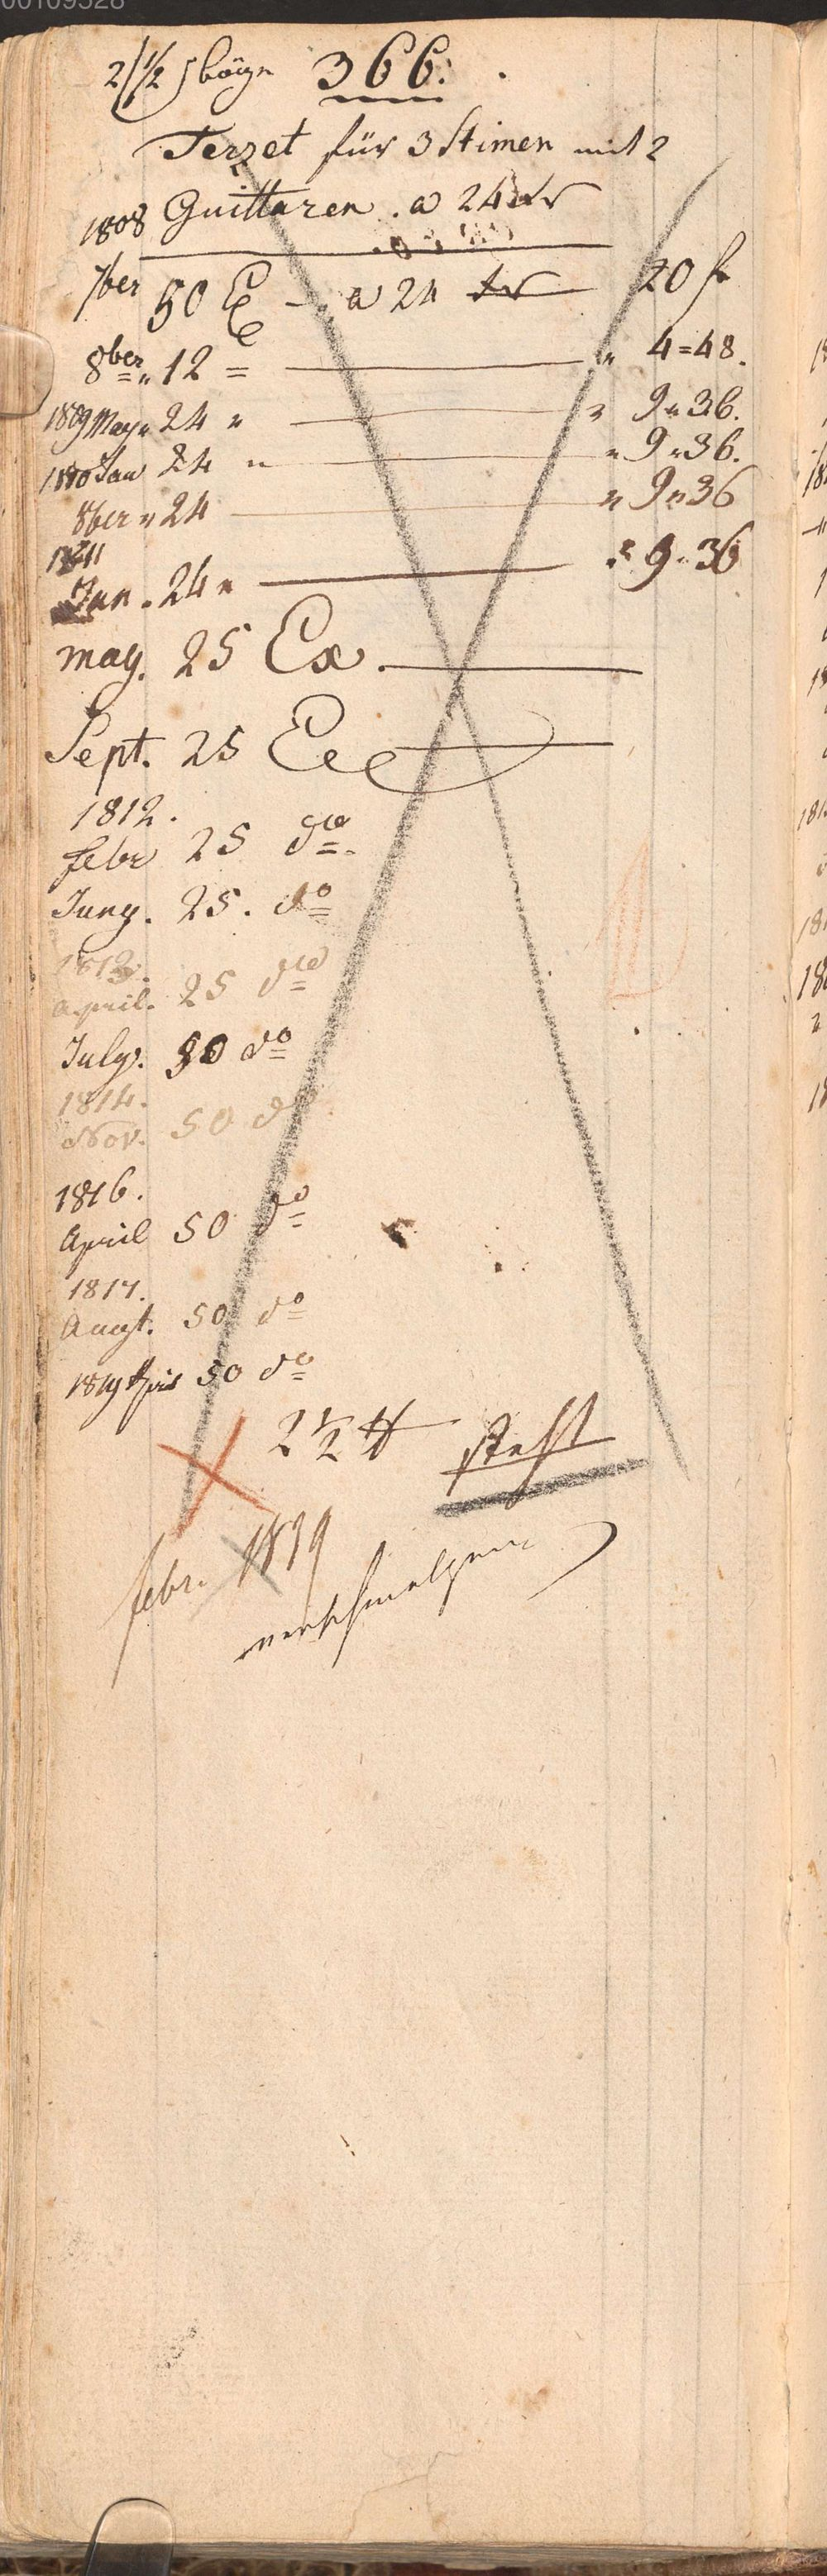 00109528
2/1/2 böge 366:
Terzet für 3 Stimen mit 2
Guittaren . a 24 xr
1808
7ber 50 Ex — a 24 xr 20 f
8ber „ 12 = „ 4=48.
1809 May „ 24 „ „ 9„36.
1810 Jan 24 „ „ 9„36.
8ber „ 24 „ 9„36
1811
Jan. 24 „ „ 9„36
may. 25 Ex.
Sept. 25 Ex
1812.
febr 25 do
Juny. 25. do
1813.
April. 25 do
July. 50 do
1814.
Nov. 50 do
1816.
April 50 do
1817.
Augt. 50 do
1819 Apris 50 do
2 1/2 ℔ steht
febr. 1839
verschmolzen